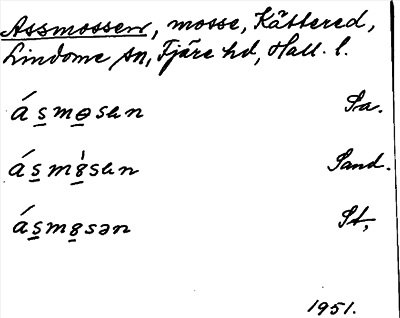 Assmossen, mosse, Kättered,
Lindome sn, Fjäre hd, Hall. l.
ásmɵsɛn Sa.
ásmɵ̀sɛn Sand.
ásmɵsən St,
1951.